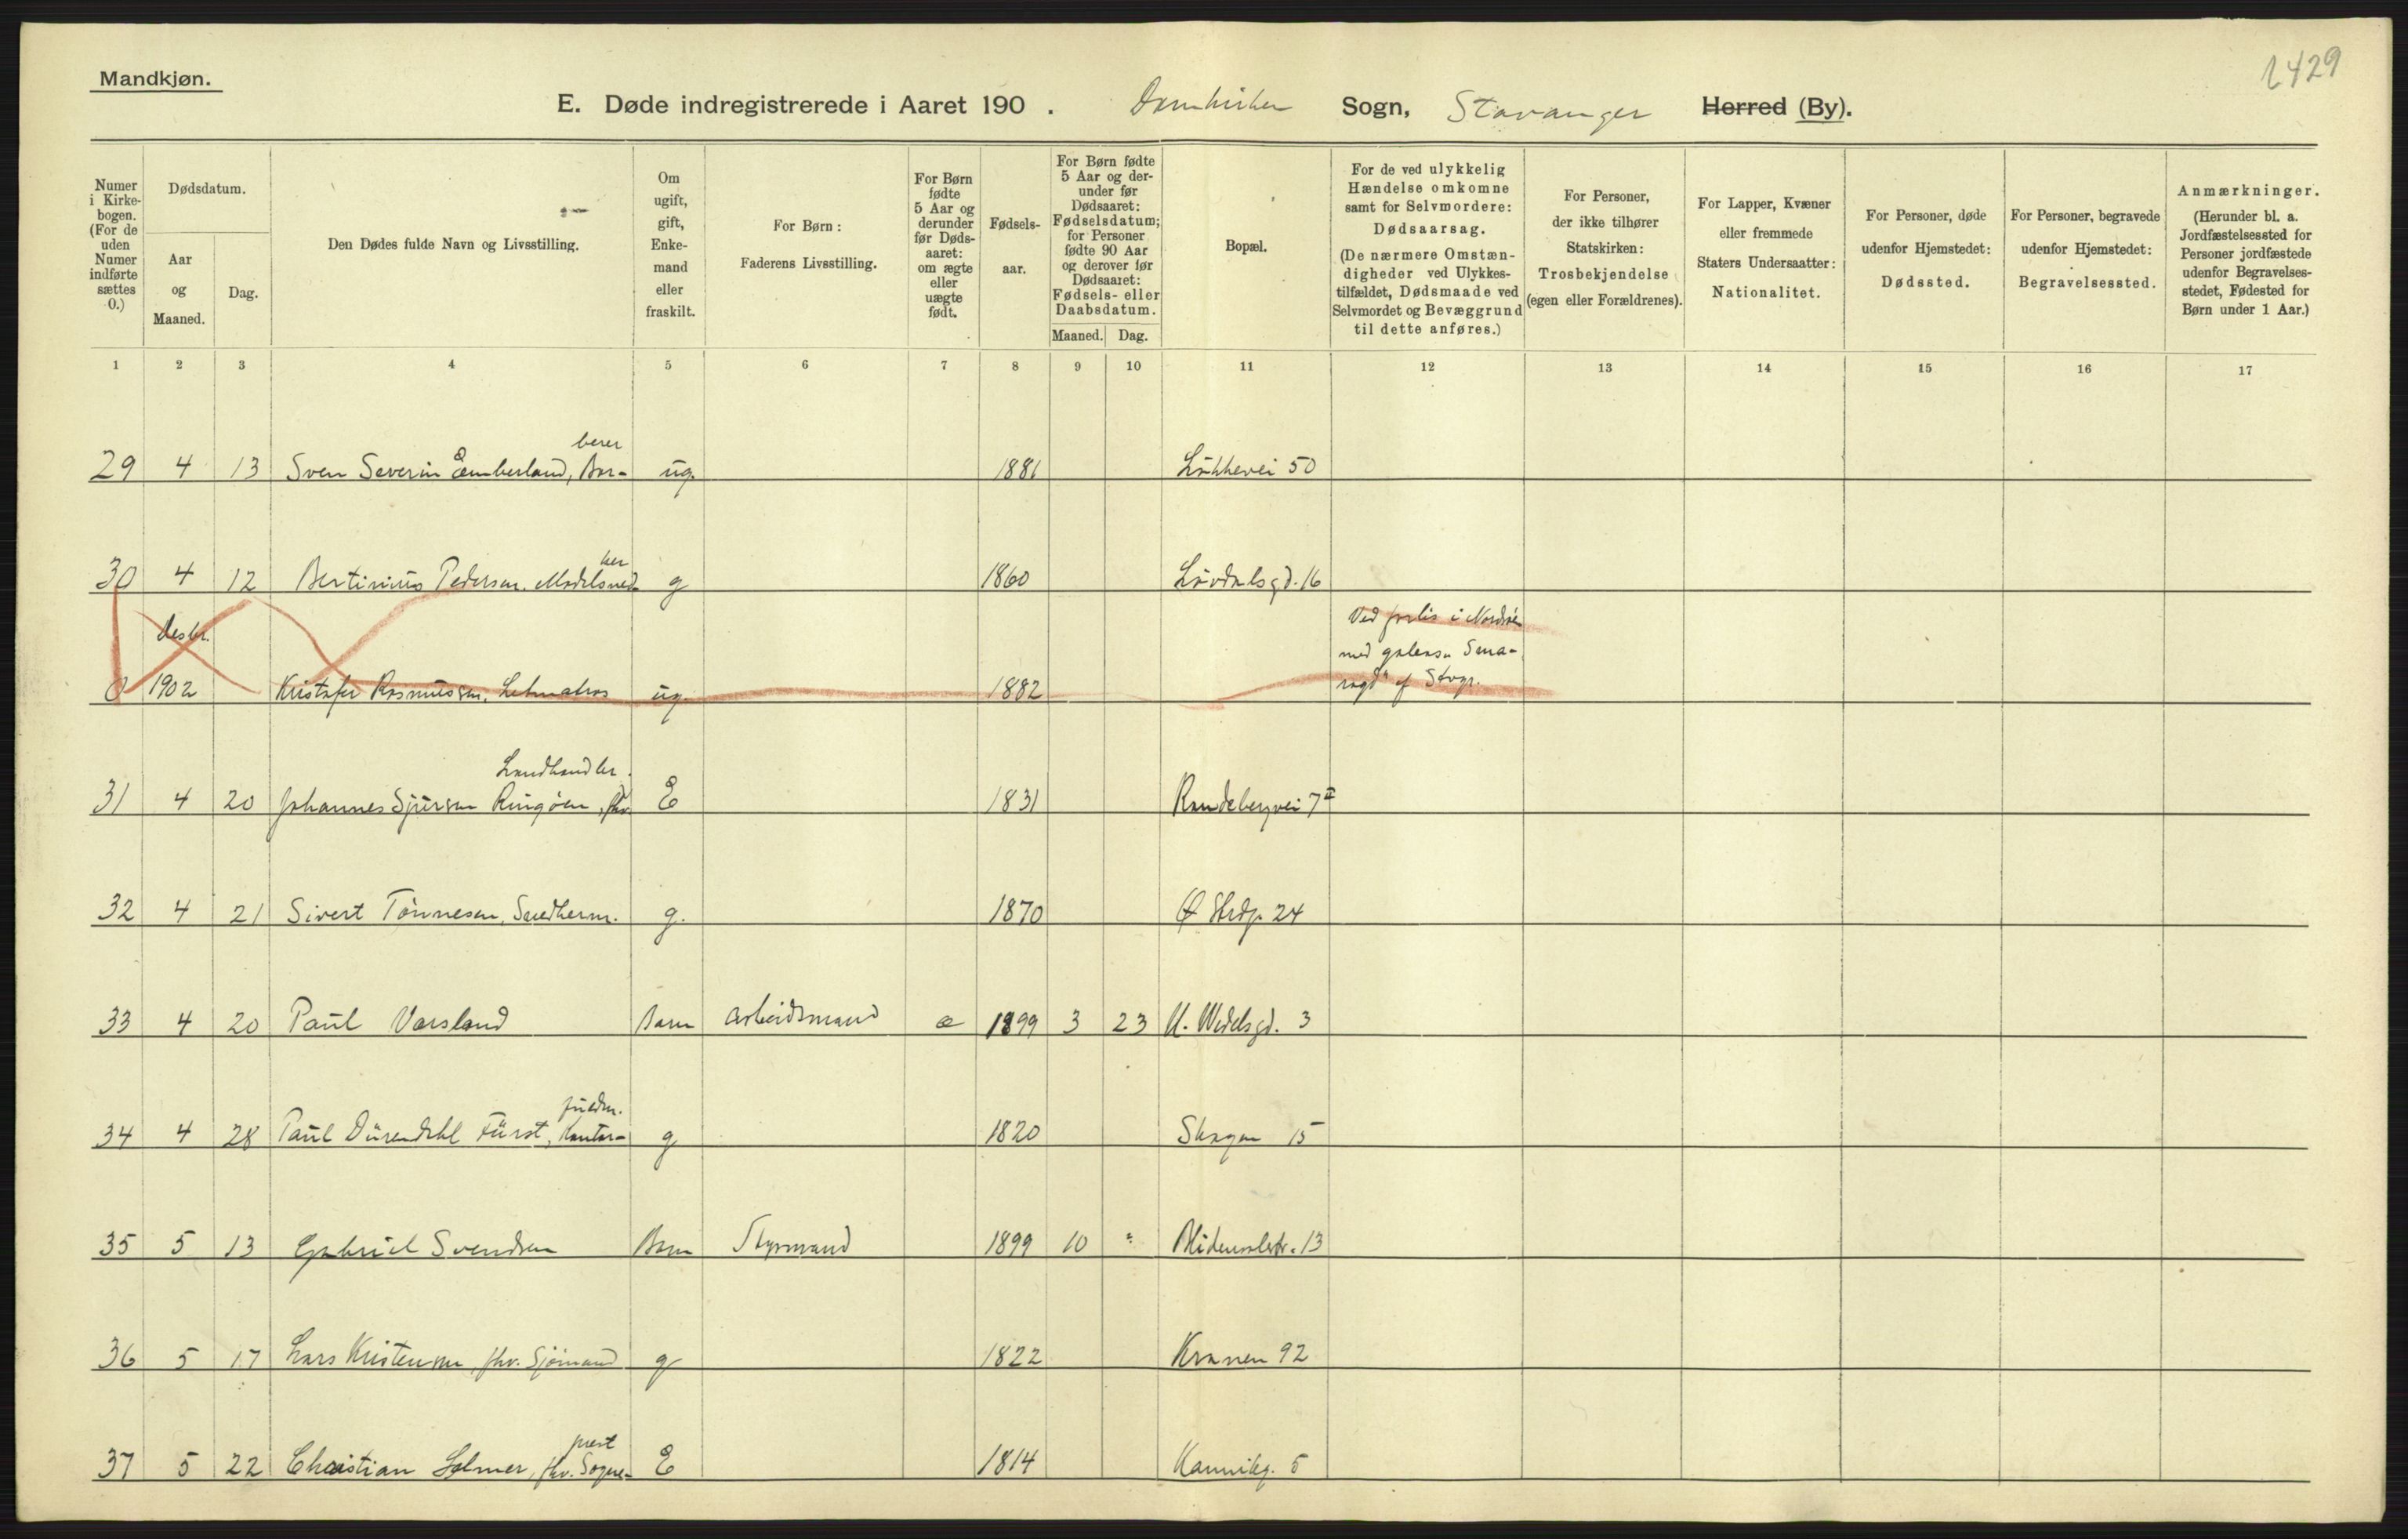 Mandkjøn.
1429
E. Døde indregistrerede i Aaret 190 . Domkirken Sogn, Stavanger Herred (By).
Numer i Kirkebogen. (For de uden Numer indførte sættes 0.)
Dødsdatum.
Aar og Maaned.
Dag.
Den Dødes fulde Navn og Livsstilling.
Om ugift, gift, Enkemand eller fraskilt.
For Børn: Faderens Livsstilling.
For Børn fødte 5 Aar og derunder før Dødsaaret: om ægte eller uægte født.
Fødselsaar.
For Børn fødte 5 Aar og derunder før Dødsaaret: Fødselsdatum; for Personer fødte 90 Aar og derover før Dødsaaret: Fødsels- eller Daabsdatum.
Maaned. Dag.
Bopæl.
For de ved ulykkelig Hændelse omkomne samt for Selvmordere: Dødsaarsag. (De nærmere Omstændigheder ved Ulykkestilfældet, Dødsmaade ved Selvmordet og Bevæggrund til dette anføres.)
For Personer, der ikke tilhører Statskirken: Trosbekjendelse (egen eller Forældrenes).
For Lapper, Kvæner eller fremmede Staters Undersaatter: Nationalitet.
For Personer, døde udenfor Hjemstedet: Dødssted.
For Personer, begravede udenfor Hjemstedet: Begravelsessted.
Anmærkninger. (Herunder bl. a. Jordfæstelsessted for Personer jordfæstede udenfor Begravelsesstedet, Fødested for Børn under 1 Aar.)
1 2 3 4 5 6 7 8 9 10 11 12 13 14 15 16 17
berer
29 4 13 Sven Severin Emberland, Bar- ug. 1881 Løkkevei 50
ker
30 4 12 Bertinius Pedersen. Modelsned- g 1860 Løvdalsgd. 16
Desbr.
Ved forlis i Nordsøen
med galeas „Sma-
0 1902 Kristofer Rasmussen, Letmatros ug. 1882 ragd" af Stvgr.
Landhandler.
31 4 20 Johannes Sjursen Ringøen, fhv. E 1831 Randebergvei 7 II
32 4 21 Sivert Tønnesen, Snedkerm. g. 1870 Ø Strdg. 24
33 4 20 Paul Varsland Barn Arbeidsmand æ 1899 3 23 N. Wedelsgd. 3
fuldm.
34 4 28 Paul Dürendahl Fürst, Kontor- g 1820 Skagen 15
35 5 13 Gabriel Svendsen Barn Styrmand 1899 10 " Blidensolstr. 13
36 5 17 Lars Kristensen, fhv. Sjømand g 1822 Kranen 92
prest
37 5 22 Christian Selmer, fhv. Sogne- E 1814 Kannikg. 5